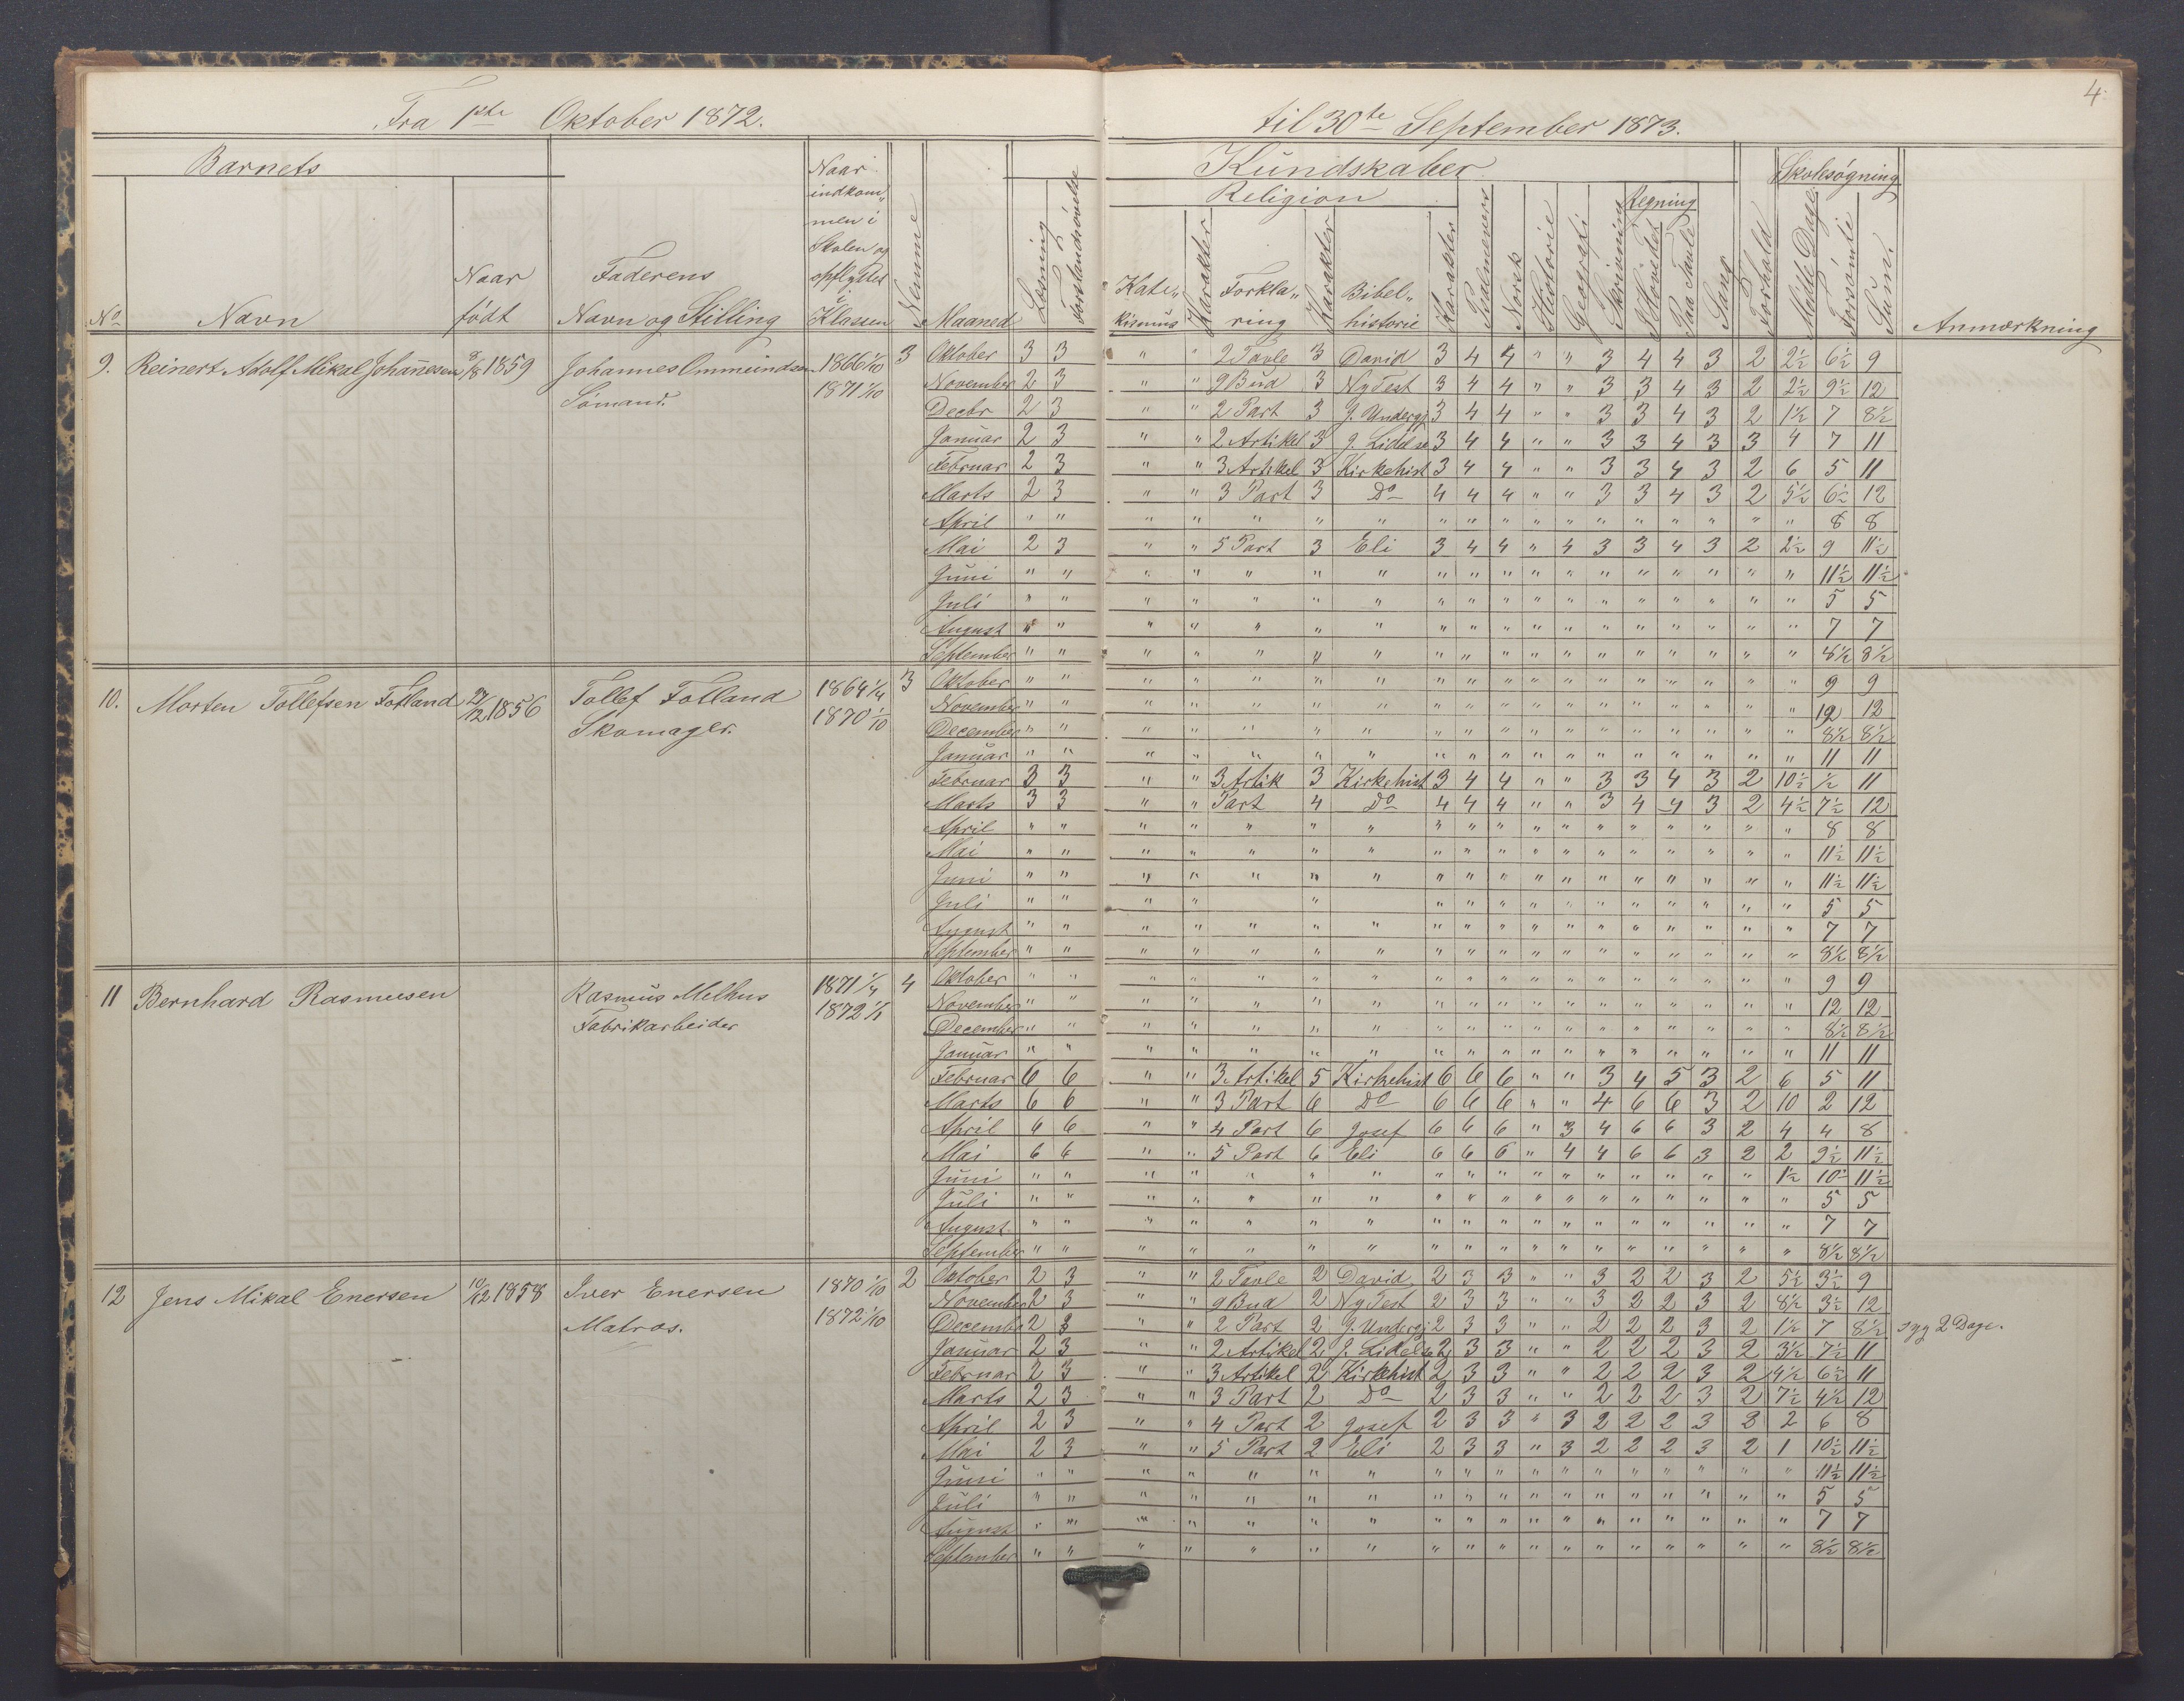 4.
Fra 1ste Oktober 1872. til 30te September 1873.
Barnets
Kundskaber
Skolesøgning
Religion
Regning
No Navn Naar født Faderens Navn og Stilling Naar indkom„ men i Skolen og opflyttet i Klassen Nemme Maaned Læsning Forstandsøvelse Kate„ kismus Karakter Forkla„ ring Karakter Bibel„ historie Karakter Psalmevers Norsk Historie Geografi Skrivning I Hovedet Paa Tavle Sang Forhold Mødte Dage Forsømte Sum. Anmærkning
9. Reinert Adolf Mikal Johannesen 8/8 1859 Johannes Ommundsen 1866 1/10 3 Oktober 3 3 " " 2 Tavle 3 David 3 4 4 " " 3 4 4 3 2 2½ 6½ 9
Sømand. 1871 1/10 November 2 3 " " 9 Bud 3 Ny Test 3 4 4 " " 3 3 4 3 2 2½ 9½ 12
Decbr 2 3 " " 2 Part 3 J. Undergj 3 4 4 " " 3 3 4 3 2 1½ 7 8½
Januar 2 3 " " 2 Artikel 3 J. Lidelse 3 4 4 " " 3 3 4 3 3 4 7 11
Februar 2 3 " " 3 Artikel 3 Kirkehist 3 4 4 " " 3 3 4 3 2 6 5 11
Marts 2 3 " " 3 Part 3 Do 4 4 4 " " 3 3 4 3 2 5½ 6½ 12
April " " " " " " " " " " " " " " " " " " 8 8
Mai 2 3 " " 5 Part 3 Eli 3 4 4 " 4 3 3 4 3 2 2½ 9 11½
Juni " " " " " " " " " " " " " " " " " " 11½ 11½
Juli " " " " " " " " " " " " " " " " " " 5 5
August " " " " " " " " " " " " " " " " " " 7 7
September " " " " " " " " " " " " " " " " " " 8½ 8½
10. Morten Tollefsen Fotland 27/12 1856 Tollef Fotland 1864 1/4 3 Oktober " " " " " " " " " " " " " " " " " " 9 9
Skomager. 1870 1/10 November " " " " " " " " " " " " " " " " " " 12 12
December " " " " " " " " " " " " " " " " " " 8½ 8½
Januar " " " " " " " " " " " " " " " " " " 11 11
Februar 3 3 " " 3 Artik 3 Kirkehist 3 4 4 " " 3 3 4 3 2 10½ ½ 11
Marts 3 3 " " Part 4 Do 4 4 4 " " 3 4 4 3 2 4½ 7½ 12
April " " " " " " " " " " " " " " " " " " 8 8
Mai " " " " " " " " " " " " " " " " " " 11½ 11½
Juni " " " " " " " " " " " " " " " " " " 11½ 11½
Juli " " " " " " " " " " " " " " " " 5 5
August " " " " " " " " " " " " " " " " " " 7 7
September " " " " " " " " " " " " " " " " " " 8½ 8½
11 Bernhard Rasmusen Rasmus Melhus 1871 1/4 4 Oktober " " " " " " " " " " " " " " " " " " 9 9
Fabrikarbeider 1872 1/1 November " " " " " " " " " " " " " " " " " " 12 12
December " " " " " " " " " " " " " " " " " " 8½ 8½
Januar " " " " " " " " " " " " " " " " " " 11 11
Februar 6 6 " " 3 Artikel 5 Kirkehist 6 6 6 " " 3 4 5 3 2 6 5 11
Marts 6 6 " " 3 Part 6 Do 6 6 6 " " 4 6 6 3 2 10 2 12
April 6 6 " " 4 Part 6 Josef 6 6 6 " 3 4 6 6 3 2 4 4 8
Mai 6 6 " " 5 Part 6 Eli 6 6 6 " 4 4 6 6 3 2 2 9½ 11½
Juni " " " " " " " " " " " " " " " " " 1½ 10 11½
Juli " " " " " " " " " " " " " " " " " " 5 5
August " " " " " " " " " " " " " " " " " " 7 7
September " " " " " " " " " " " " " " " " " " 8½ 8½
12 Jens Mikal Enersen 10/12 1858 Iver Enersen 1870 1/10 2 Oktober 2 3 " " 2 Tavle 2 David 2 3 3 " " 3 2 2 3 2 5½ 3½ 9
Matros. 1872 1/10 November 2 3 " " 9 Bud 2 Ny Test 2 3 3 " " 3 2 2 3 2 8½ 3½ 12
December 2 3 " " 2 Part 2 J. Undergj 2 3 3 " " 2 2 2 3 2 1½ 7 8½ syg 2 Dage.
Januar 2 3 " " 2 Artikel 2 J. Lidelse 2 3 3 " " 2 2 2 3 2 3½ 7½ 11
Februar 2 3 " " 3 Artikel 2 Kirkehist 2 3 3 " " 2 2 2 3 2 4½ 6½ 11
Marts 2 3 " " 3 Part 2 Do 2 3 3 " " 2 2 2 3 2 7½ 4½ 12
April 2 3 " " 4 Part 2 Josef 2 3 3 " 3 2 2 2 3 2 2 6 8
Mai 2 3 " " 5 Part 2 Eli 2 3 3 " 3 2 2 2 3 2 1 10½ 11½
Juni " " " " " " " " " " " " " " " " " " 11½ 11½
Juli " " " " " " " " " " " " " " " " " " 5 5
August " " " " " " " " " " " " " " " " " " 7 7
September " " " " " " " " " " " " " " " " " " 8½ 8½